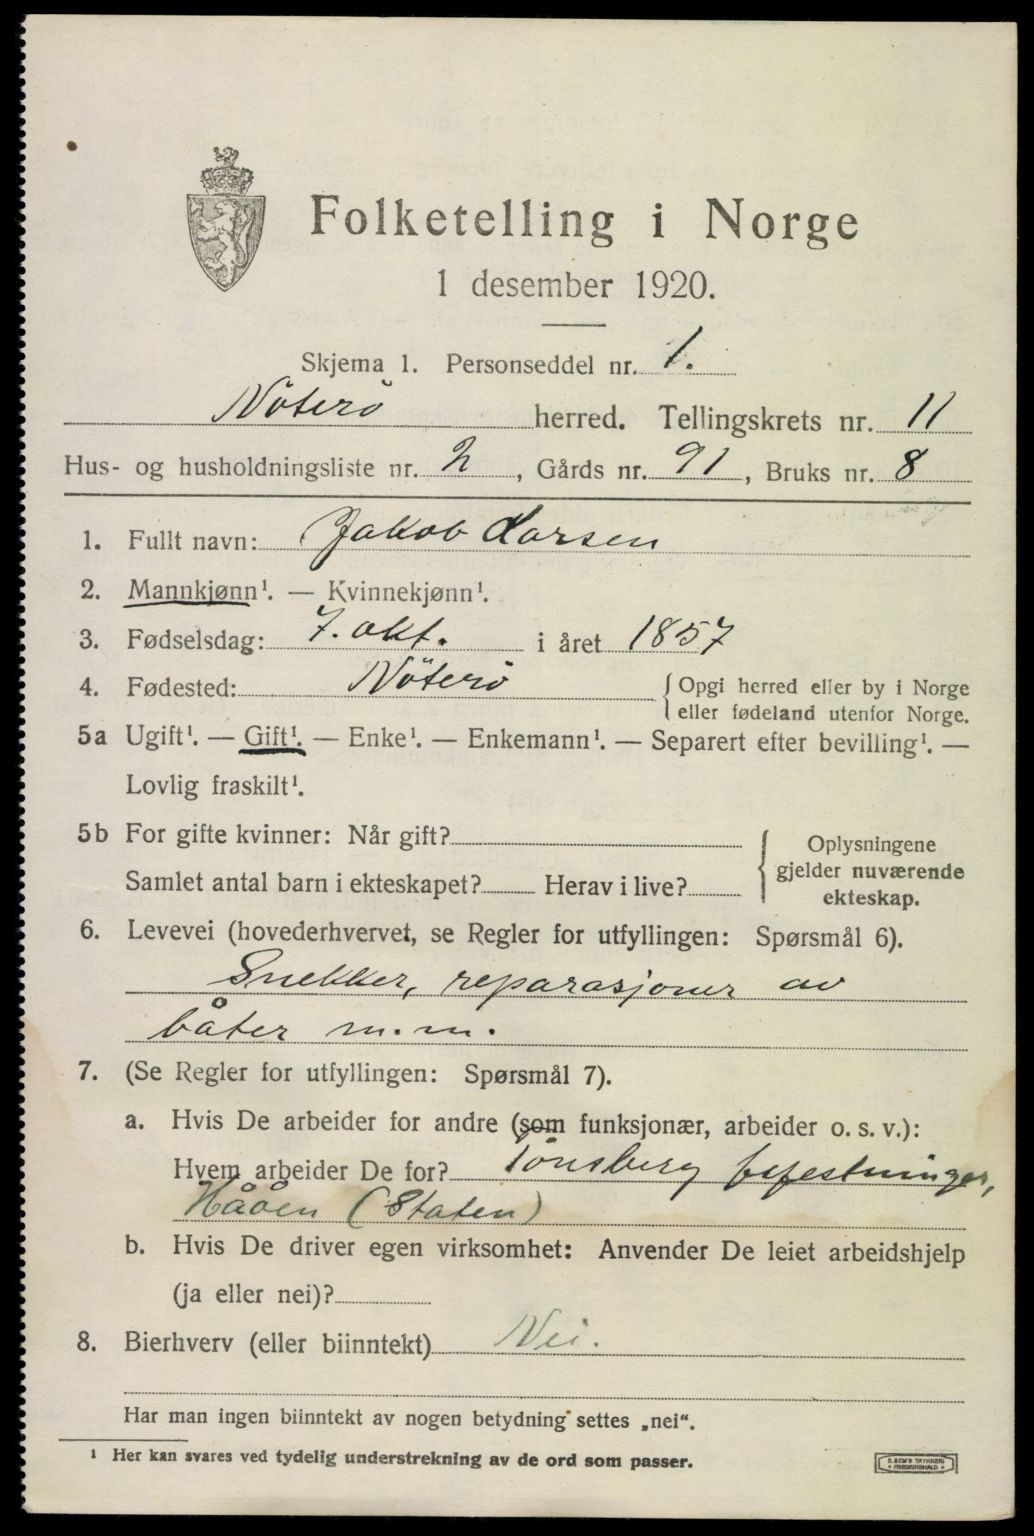 Folketelling i Norge
1 desember 1920.
Skjema 1. Personseddel nr. 1.
Nöterö herred. Tellingskrets nr. 11
Hus- og husholdningsliste nr. 2, Gårds nr. 91, Bruks nr. 8
1. Fullt navn: Jakob Larsen
2. Mannkjønn¹. — Kvinnekjønn¹.
3. Fødselsdag: 7. okt. i året 1857
4. Fødested: Nöterö { Opgi herred eller by i Norge
eller fødeland utenfor Norge.
5a Ugift¹. — Gift¹. — Enke¹. — Enkemann¹. — Separert efter bevilling¹. —
Lovlig fraskilt¹.
5b For gifte kvinner: Når gift?
Samlet antal barn i ekteskapet? Herav i live?
Oplysningene
gjelder nuværende
ekteskap.
6. Levevei (hovederhvervet, se Regler for utfyllingen: Spørsmål 6).
Snekker, reparasjoner av
båter m.m.
7. (Se Regler for utfyllingen: Spørsmål 7).
a. Hvis De arbeider for andre (som funksjonær, arbeider o. s. v.):
Hvem arbeider De for? Tønsberg befestninger,
Håöen (Staten)
b. Hvis De driver egen virksomhet: Anvender De leiet arbeidshjelp
(ja eller nei)?
8. Bierhverv (eller biinntekt) Nei.
Har man ingen biinntekt av nogen betydning settes „nei“.
¹ Her kan svares ved tydelig understrekning av de ord som passer.